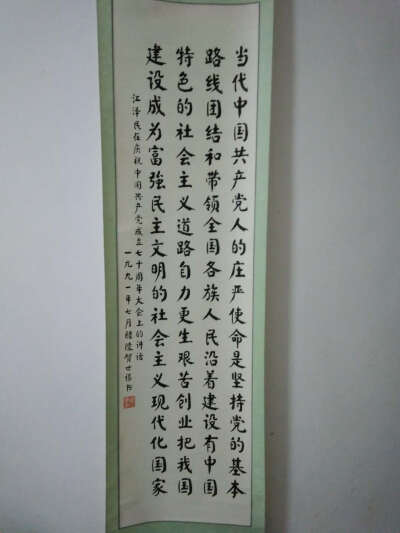 当代中国共产党人的庄严使命是坚持党的基本
路线团结和带领全国各族人民沿着建设有中国
特色的社会主义道路自力更生艰苦创业把我国
建设成为富强民主文明的社会主义现代化国家
江泽民在庆祝中国共产党成立七十周年大会上的讲话
一九九一年七月